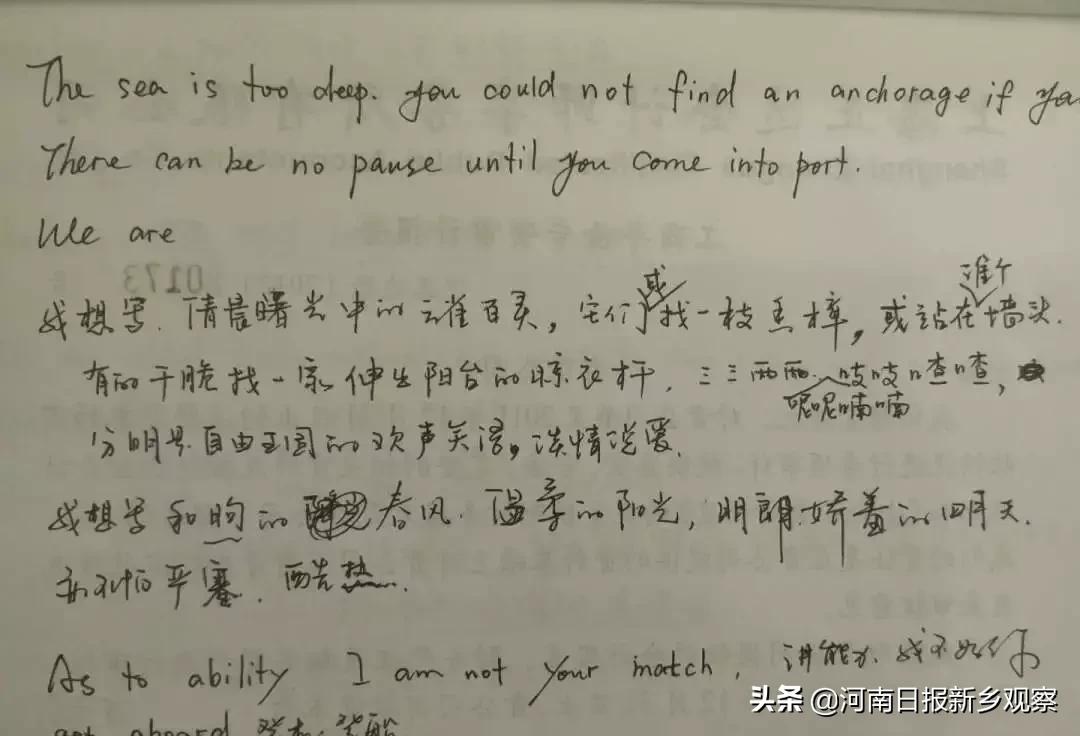 The sea is too deep. you could not find an anchorage if you
There can be no pause until you come into port.
We are
我想写.清晨曙光中的云雀百灵,它们或找一枝香樟,或站在谁个墙头.
有的干脆找一家伸出阳台的晾衣杆.三三两两.呢呢喃喃吱吱喳喳,
分明是自由王国的欢声笑语,谈情说爱.
我想写和煦的春风.温柔的阳光,明朗娇羞的四月天.
亦不怕严寒.酷热.
As to ability I am not your match, 讲能力.我不如你
got aboard 登机.登船
0173
头条 @河南日报新乡观察